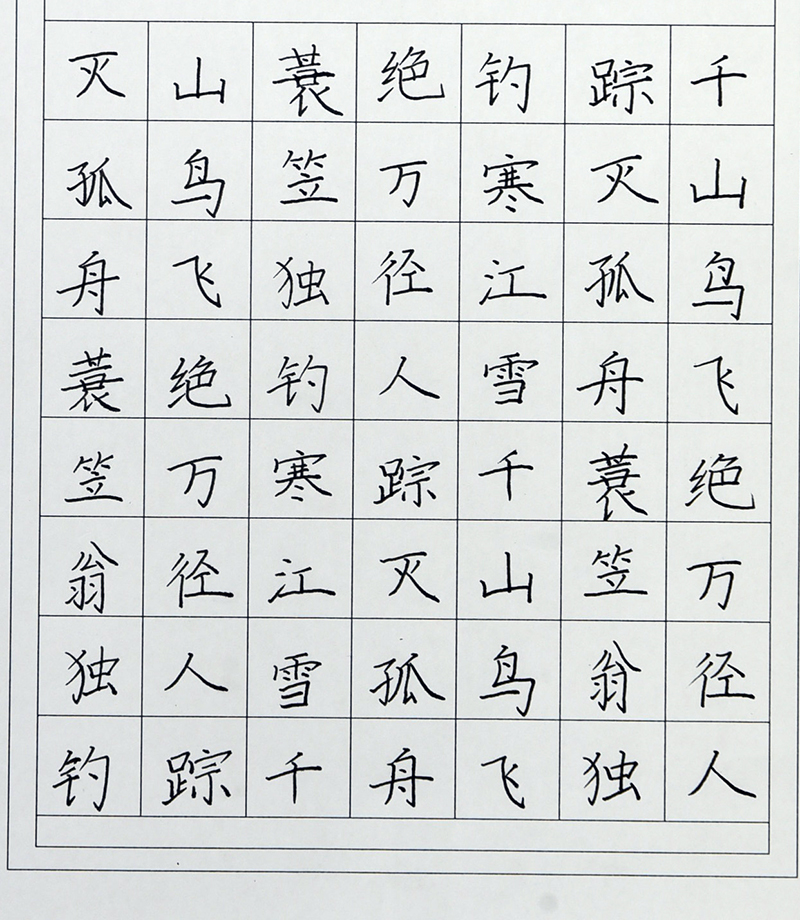 千山鸟飞绝万径人
踪灭孤舟蓑笠翁独
钓寒江雪千山鸟飞
绝万径人踪灭孤舟
蓑笠独钓寒江雪千
山鸟飞绝万径人踪
灭孤舟蓑笠翁独钓